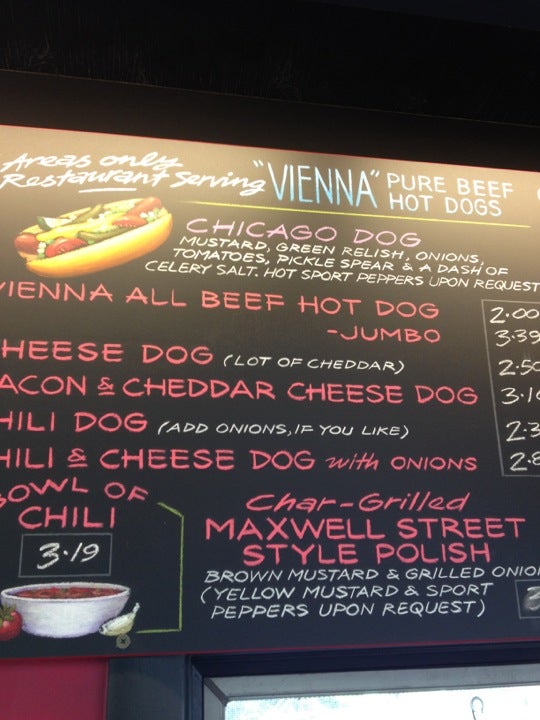 Areas only
Restaurant Serving "VIENNA" PURE BEEF HOT DOGS
CHICAGO DOG
MUSTARD, GREEN RELISH, ONIONS,
TOMATOES, PICKLE SPEAR & A DASH OF
CELERY SALT. HOT SPORT PEPPERS UPON REQUEST
VIENNA ALL BEEF HOT DOG 2.00
-JUMBO 3.39
HEESE DOG (LOT OF CHEDDAR) 2.50
ACON & CHEDDAR CHEESE DOG 3.1
HILI DOG (ADD ONIONS, IF YOU LIKE) 2.3
HILI & CHEESE DOG with ONIONS 2.8
BOWL OF
CHILI
3.19
Char-Grilled
MAXWELL STREET
STYLE POLISH
BROWN MUSTARD & GRILLED ONIO
(YELLOW MUSTARD & SPORT
PEPPERS UPON REQUEST)